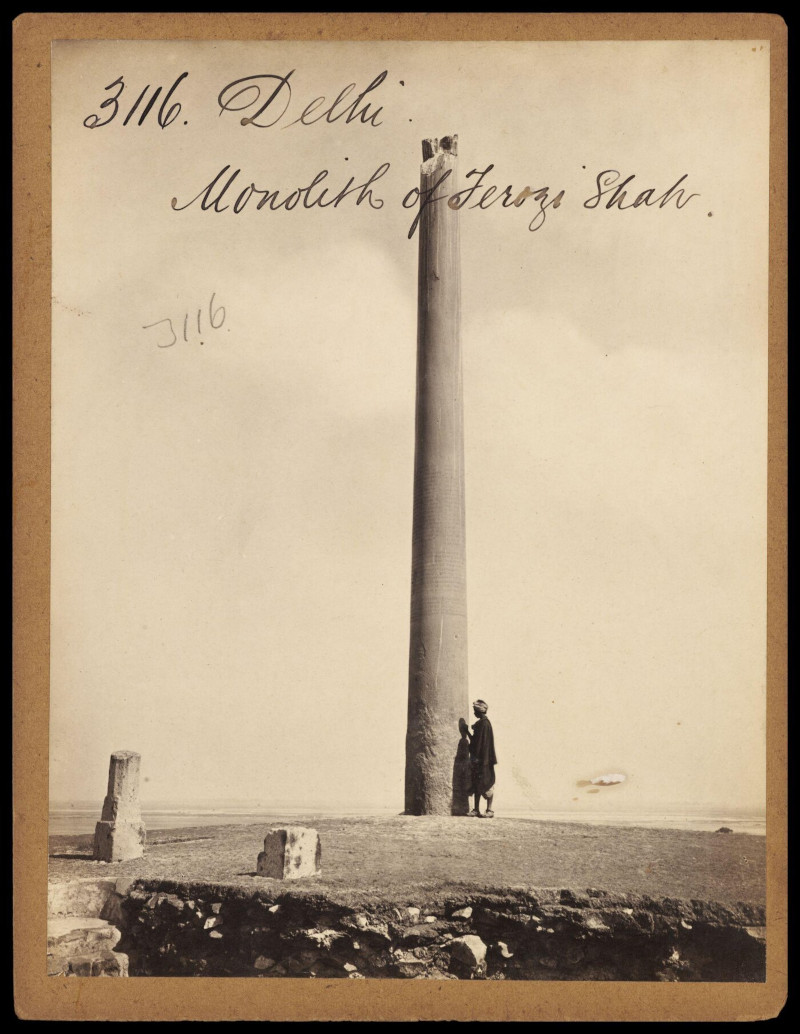 3116. Delhi.
Monolith of Ferozi Shah.
3116.